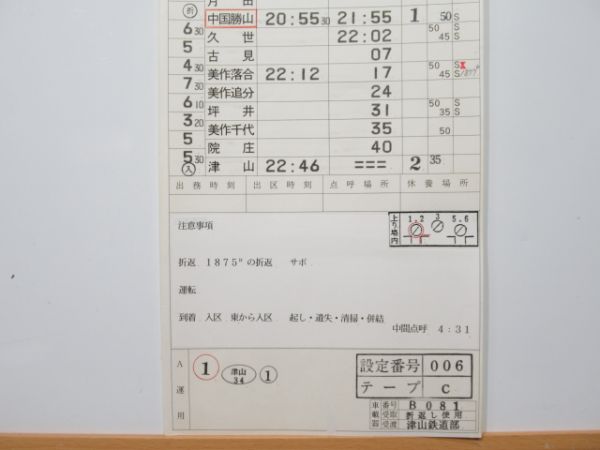 月田
折
中国勝山 20:55 30 21:55 1 50 S
6 30
久世 22:02 50 S 45 S
5
古見 07
4 30
美作落合 22:12 17 50 S 45 S
7 30
美作追分 24
6 10
坪井 31 50 S 35 S
3 20
美作千代 35 50
5
院庄 40
5 30
入 津山 22:46 === 2 35
出務時刻 出区時刻 点呼場所 休養場所
注意事項
上り場内 1.2 3 5.6
折返 1875〃の折返 サボ
運転
到着 入区 東から入区 起し・遺失・清掃・併結
中間点呼 4:31
A運用 1 津山34 1
設定番号 006
テープ C
車載器 番号 B081
受取 折返し使用
受渡 津山鉄道部